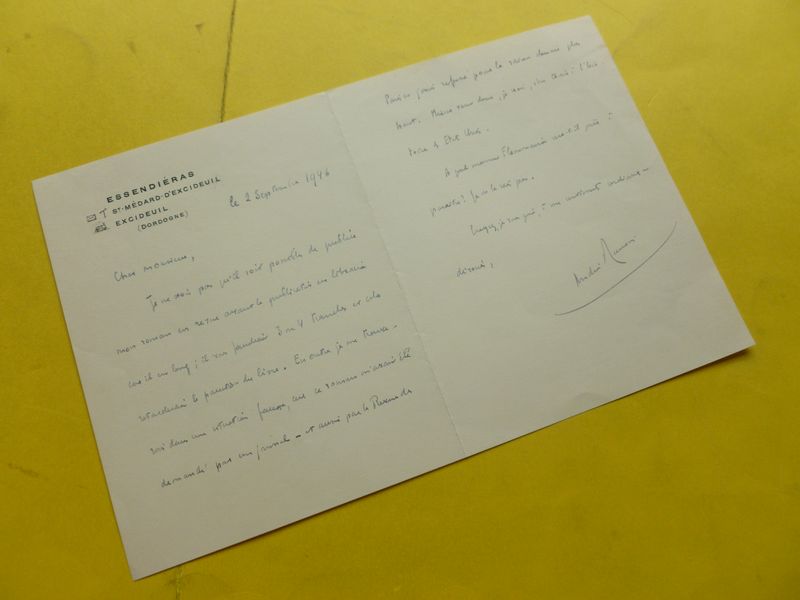 ESSENDIÉRAS
ST-MÉDARD-D'EXCIDEUIL
EXCIDEUIL
(DORDOGNE)
le 2 Septembre 1946
Cher monsieur,
Je ne crois pas qu'il soit possible de publier
mon roman en revue avant la publication en librairie
car il est long; il en faudrait 3 ou 4 tranches et cela
retarderait la parution du livre. En outre je me trouve-
rais dans une situation fausse, car ce roman m'avait été
demandé par - et aussi par la Revue de
Paris refusé pour la raison donnée plus
haut. Mieux vaut donc, je crois,
et États Unis.
A quel moment Flammarion sera-t-il prêt à
paraître? Je ne le sais pas.
Croyez, je vous prie, à mes sentiments cordialement
dévoués,
André Maurois